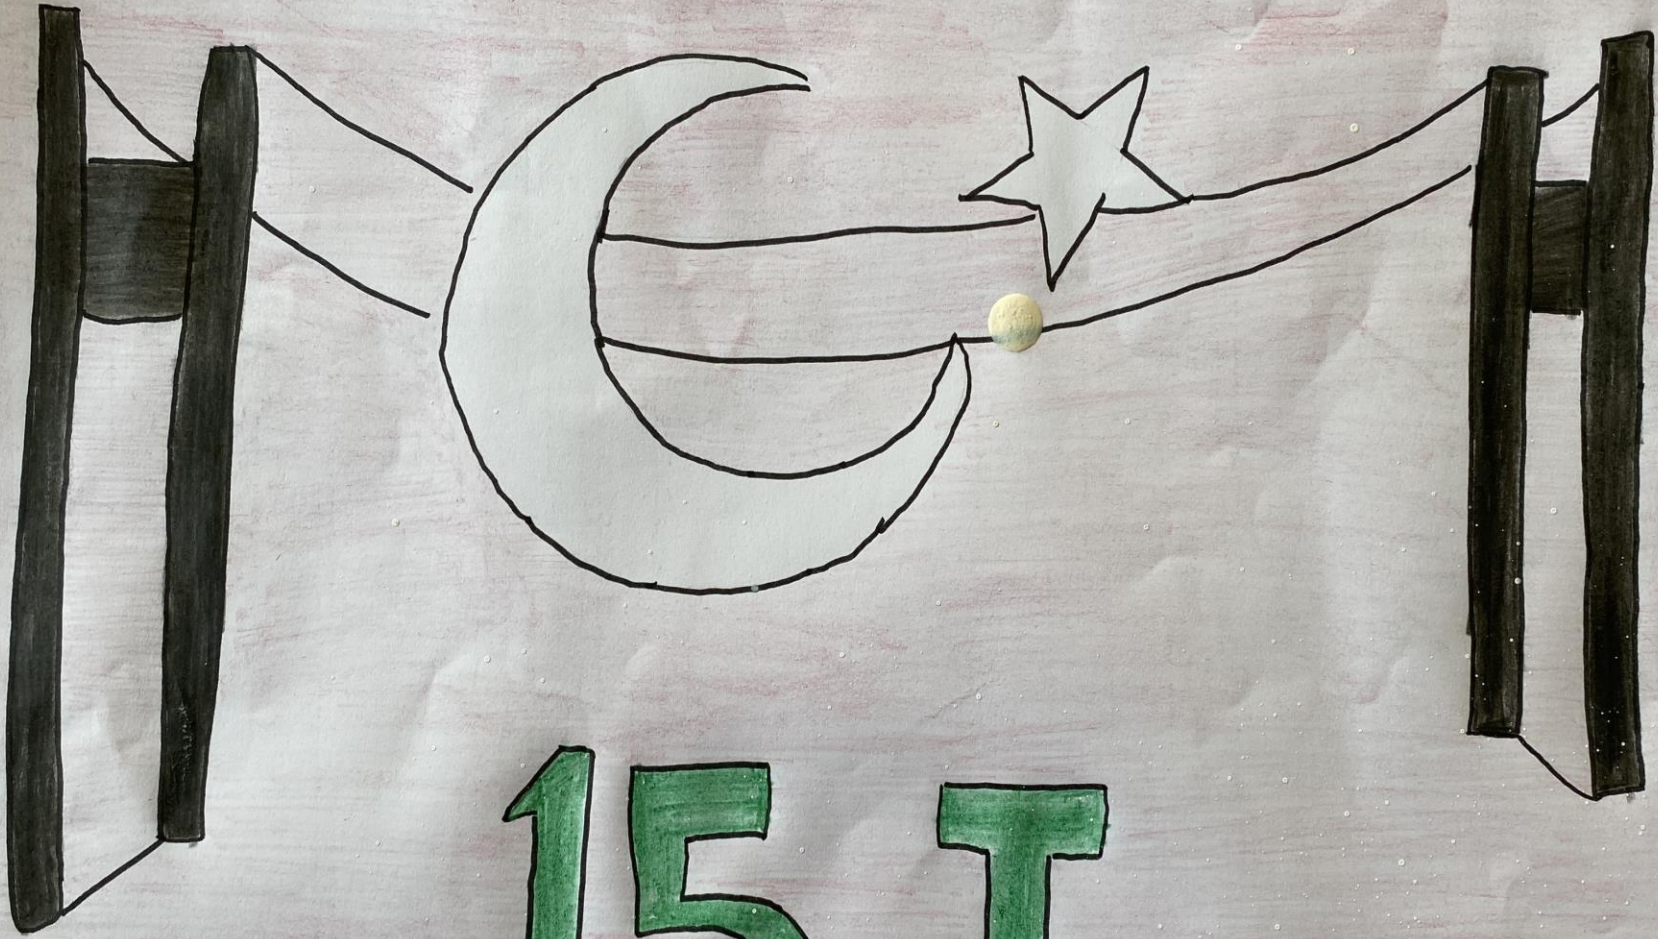 15 T